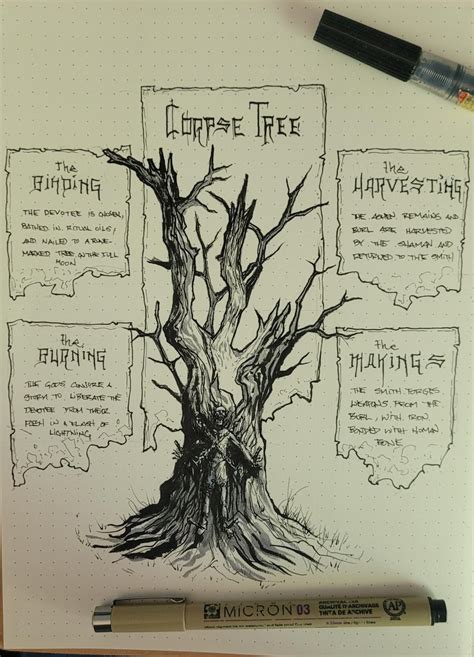 Corpse Tree
The
Binding
The devotee is chosen,
bathed in ritual oils,
and nailed to a rune-
marked tree on the full
moon
the
Harvesting
The ashen remains and
burl are harvested
by the shaman and
returned to the smith
the
Burning
The gods conjure a
storm to liberate the
devotee from their
flesh in a flash of
lightning
the
Makings
The smith forges
weapons from the
burl, with iron
bonded with human
bone
MICRON 03
ARCHIVAL INK
QUALITÉ D'ARCHIVAGE
TINTA DE ARCHIVE
AP